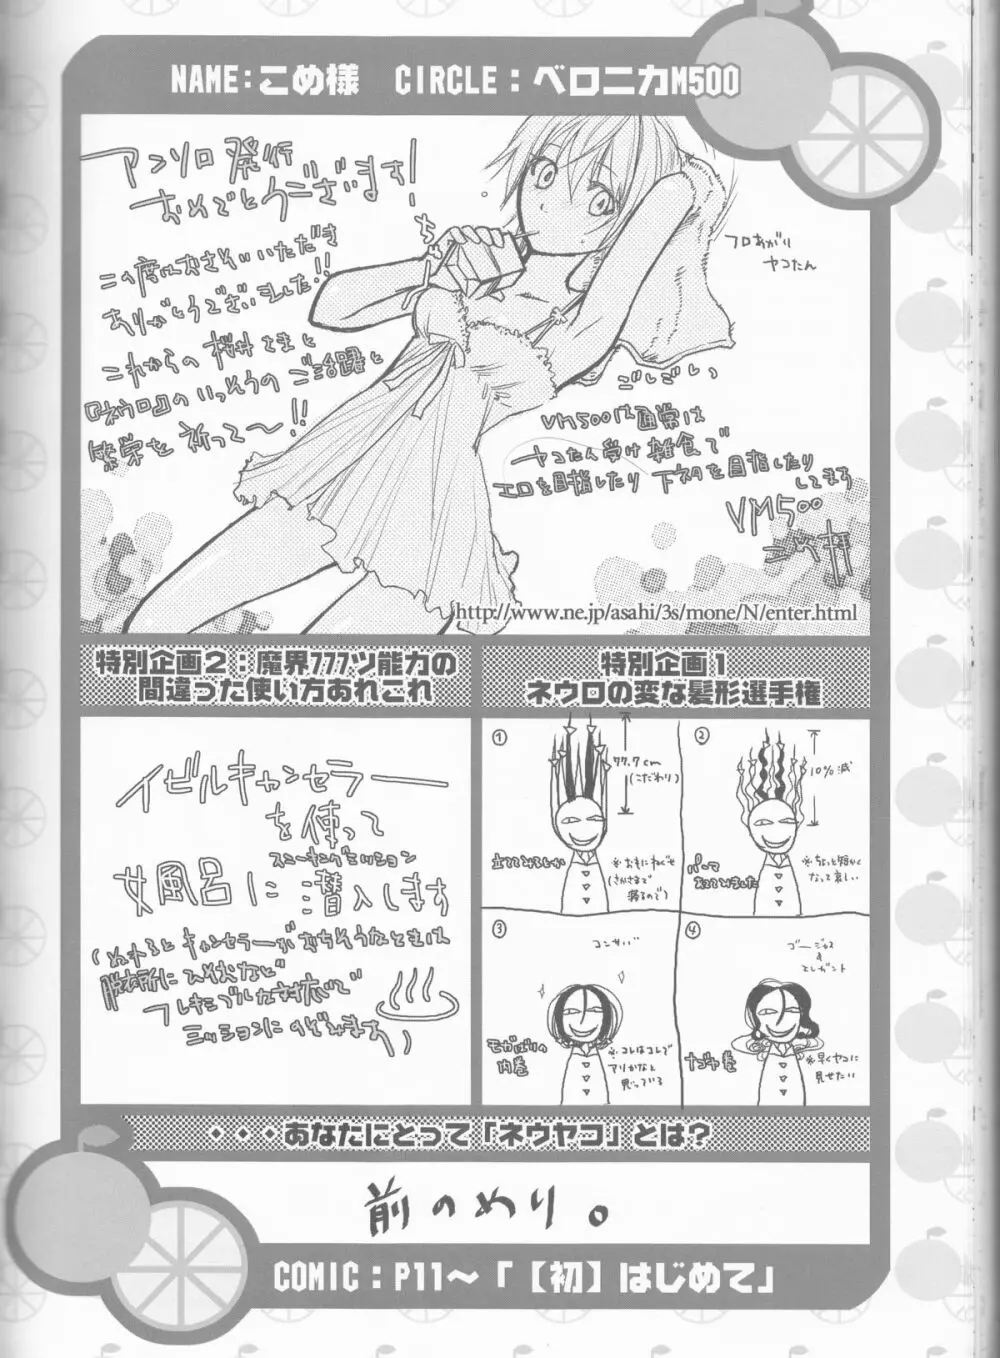 NAME:こめ様　CIRCLE：ベロニカM500
アンソロ発行
おめでとうございます!
この度はおさそいいただき
ありがとうございました!!
これからの桜井さまと
『ネウロ』のいっそうのご活躍と
繁栄を祈って〜!!
フロあがり
ヤコたん
ごしごしい
VM500は通常は
ヤコたん受け雑食で
エロを目指したり下ネタを目指したり
してます
VM500
http://www.ne.jp/asahi/3s/mone/N/enter.html
特別企画1
ネウロの変な髪形選手権
①
77.7cm
(こだわり)
立ててみるとか
※おもにねぐせ
(さかさまで
寝るので)
②
10%減
パーマ
あててみました
※ちょっと短かく
なって哀しい
③
コンサバ
モガばりの
内巻
※コレはコレで
アリかなと
思っている
④
ゴージャス
&
エレガント
ナゴヤ巻
※早くヤコに
見せたい
特別企画2：魔界777ツ能力の
間違った使い方あれこれ
イビルキャンセラー
を使って
女風呂に潜入します
スニーキングミッション
(ぬれるとキャンセラーがおちそうなときは
脱衣所に伏すなど
フレキシブルな対応で
ミッションにのぞみます)
・・・あなたにとって「ネウヤコ」とは？
前のめり。
COMIC：P11〜「【初】はじめて」